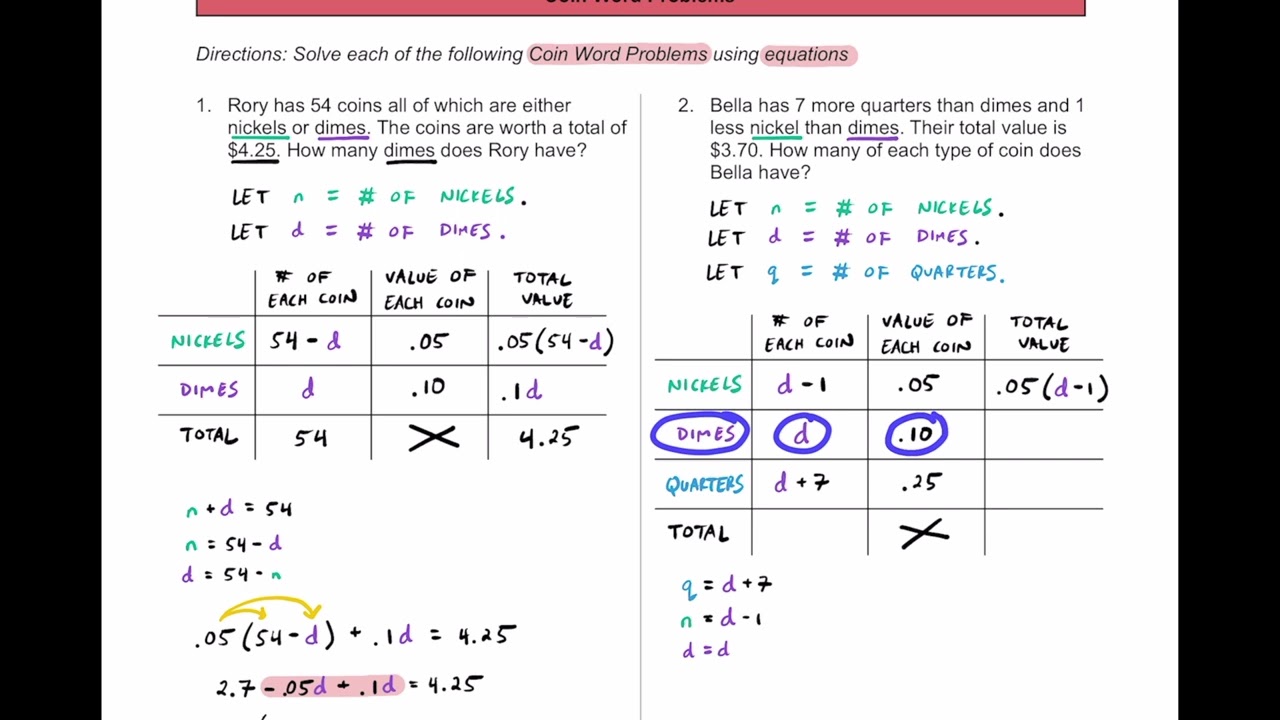 Coin Word Problems
Directions: Solve each of the following Coin Word Problems using equations
1. Rory has 54 coins all of which are either
nickels or dimes. The coins are worth a total of
$4.25. How many dimes does Rory have?
LET n = # OF NICKELS.
LET d = # OF DIMES.
# OF EACH COIN VALUE OF EACH COIN TOTAL VALUE
NICKELS 54 - d .05 .05(54-d)
DIMES d .10 .1d
TOTAL 54 X 4.25
n + d = 54
n = 54 - d
d = 54 - n
.05(54-d) + .1d = 4.25
2.7 - .05d + .1d = 4.25
2. Bella has 7 more quarters than dimes and 1
less nickel than dimes. Their total value is
$3.70. How many of each type of coin does
Bella have?
LET n = # OF NICKELS.
LET d = # OF DIMES.
LET q = # OF QUARTERS.
# OF EACH COIN VALUE OF EACH COIN TOTAL VALUE
NICKELS d - 1 .05 .05(d-1)
DIMES d .10
QUARTERS d + 7 .25
TOTAL X
q = d + 7
n = d - 1
d = d